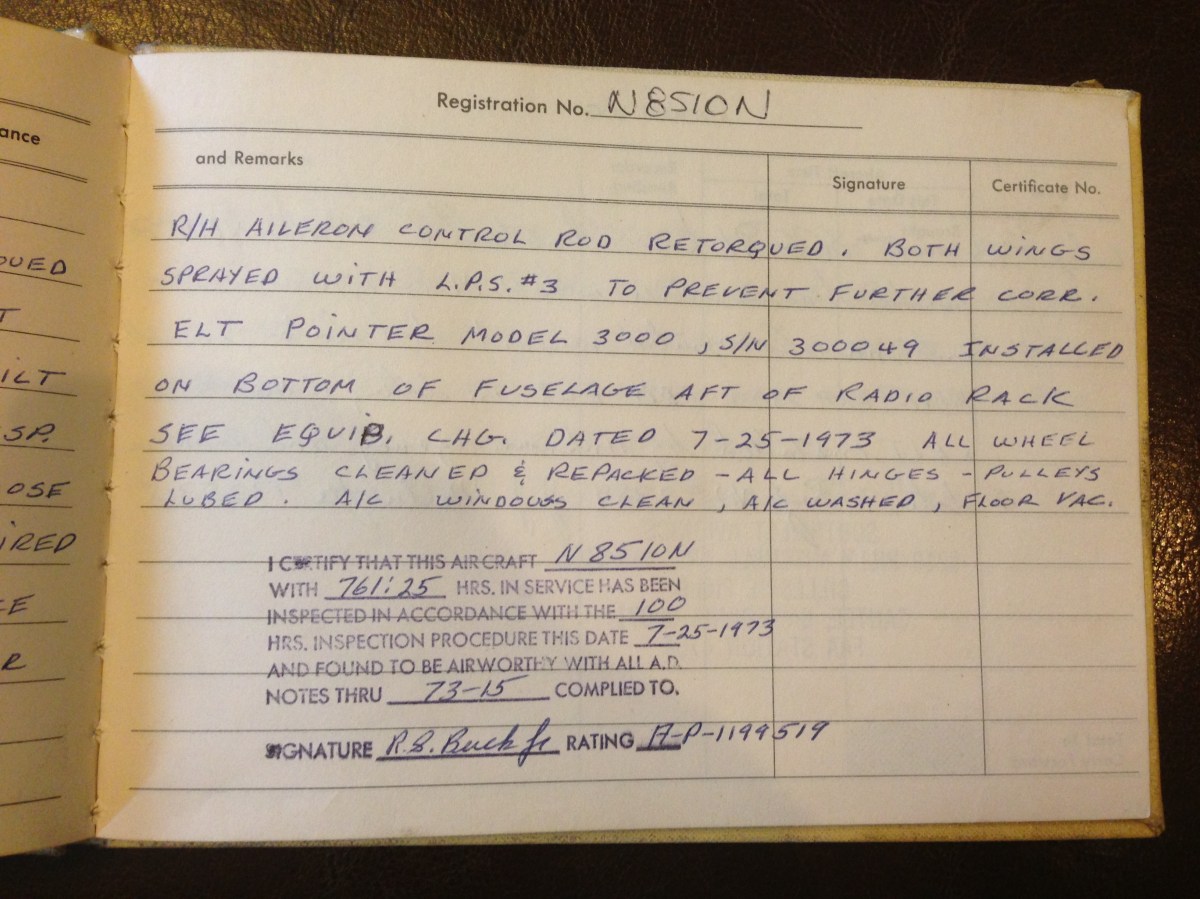 ance
OUED
T
ILT
SP.
OSE
IRED
CE
R
Registration No. N8510N
and Remarks
Signature
Certificate No.
R/H AILERON CONTROL ROD RETORQUED. BOTH WINGS
SPRAYED WITH L.P.S. #3 TO PREVENT FURTHER CORR.
ELT POINTER MODEL 3000, S/N 300049 INSTALLED
ON BOTTOM OF FUSELAGE AFT OF RADIO RACK
SEE EQUIP. CHG. DATED 7-25-1973 ALL WHEEL
BEARINGS CLEANED & REPACKED - ALL HINGES - PULLEYS
LUBED. A/C WINDOWS CLEAN, A/C WASHED, FLOOR VAC.
I CERTIFY THAT THIS AIRCRAFT N8510N
WITH 761:25 HRS. IN SERVICE HAS BEEN
INSPECTED IN ACCORDANCE WITH THE 100
HRS. INSPECTION PROCEDURE THIS DATE 7-25-1973
AND FOUND TO BE AIRWORTHY WITH ALL A.D.
NOTES THRU 73-15 COMPLIED TO.
SIGNATURE R.S. Buck Jr RATING A-P-1199519